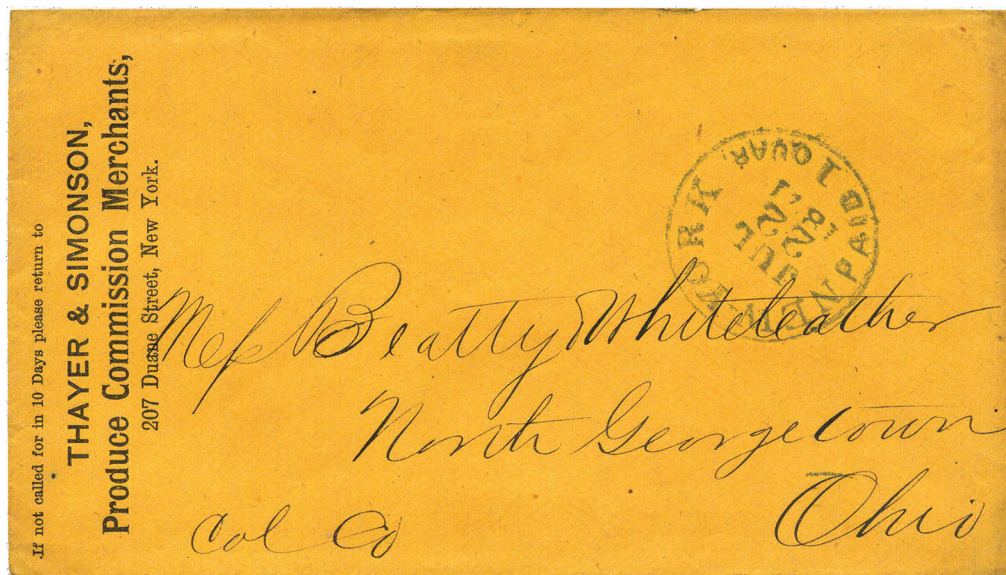 If not called for in 10 Days please return to
THAYER & SIMONSON,
Produce Commission Merchants,
207 Duane Street, New York.
NEW YORK
JUL
22
'71
PAID 1 QUAR.
Mess Beatty & Whiteleather
North Georgetown
Col Co
Ohio